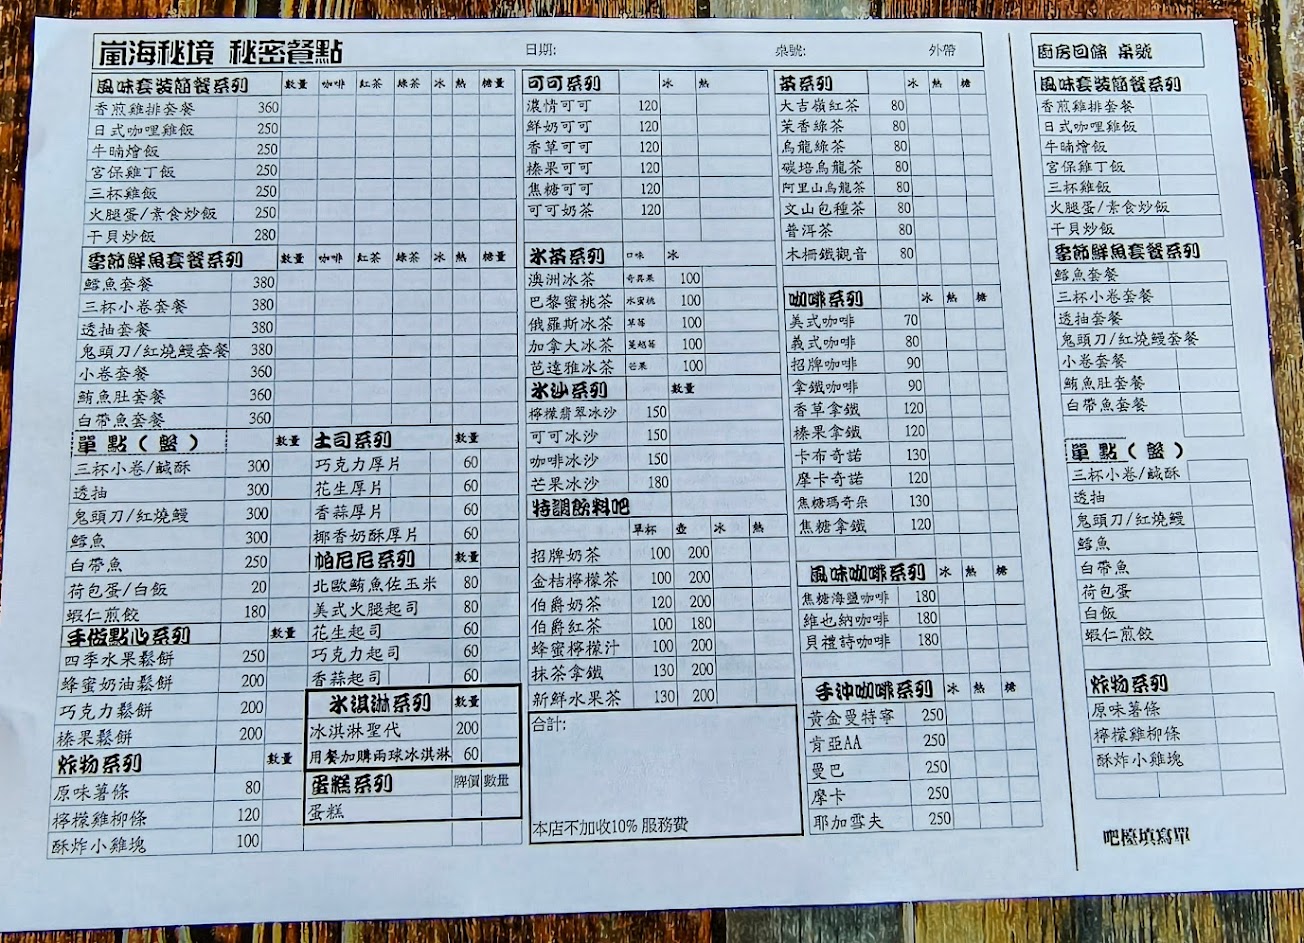 嵐海秘境 秘密餐點 日期: 桌號: 外帶
風味套裝簡餐系列 數量 咖啡 紅茶 綠茶 冰 熱 糖量
香煎雞排套餐 360
日式咖哩雞飯 250
牛腩燴飯 250
宮保雞丁飯 250
三杯雞飯 250
火腿蛋/素食炒飯 250
干貝炒飯 280
季節鮮魚套餐系列 數量 咖啡 紅茶 綠茶 冰 熱 糖量
鱈魚套餐 380
三杯小卷套餐 380
透抽套餐 380
鬼頭刀/紅燒鰻套餐 380
小卷套餐 360
鮪魚肚套餐 360
白帶魚套餐 360
單點(盤) 數量
三杯小卷/鹹酥 300
透抽 300
鬼頭刀/紅燒鰻 300
鱈魚 300
白帶魚 250
荷包蛋/白飯 20
蝦仁煎餃 180
手做點心系列 數量
四季水果鬆餅 250
蜂蜜奶油鬆餅 200
巧克力鬆餅 200
榛果鬆餅 200
炸物系列 數量
原味薯條 80
檸檬雞柳條 120
酥炸小雞塊 100
土司系列 數量
巧克力厚片 60
花生厚片 60
香蒜厚片 60
椰香奶酥厚片 60
帕尼尼系列 數量
北歐鮪魚佐玉米 80
美式火腿起司 80
花生起司 60
巧克力起司 60
香蒜起司 60
冰淇淋系列 數量
冰淇淋聖代 200
用餐加購兩球冰淇淋 60
蛋糕系列 牌價 數量
蛋糕
可可系列 冰 熱
濃情可可 120
鮮奶可可 120
香草可可 120
榛果可可 120
焦糖可可 120
可可奶茶 120
冰茶系列 口味 冰
澳洲冰茶 奇異果 100
巴黎蜜桃茶 水蜜桃 100
俄羅斯冰茶 草莓 100
加拿大冰茶 蔓越莓 100
芭達雅冰茶 芒果 100
冰沙系列 數量
檸檬翡翠冰沙 150
可可冰沙 150
咖啡冰沙 150
芒果冰沙 180
特調飲料吧
單杯 壺 冰 熱
招牌奶茶 100 200
金桔檸檬茶 100 200
伯爵奶茶 120 200
伯爵紅茶 100 180
蜂蜜檸檬汁 100 200
抹茶拿鐵 130 200
新鮮水果茶 130 200
合計:
本店不加收10% 服務費
茶系列 冰 熱 糖
大吉嶺紅茶 80
茉香綠茶 80
烏龍綠茶 80
碳培烏龍茶 80
阿里山烏龍茶 80
文山包種茶 80
普洱茶 80
木柵鐵觀音 80
咖啡系列 冰 熱 糖
美式咖啡 70
義式咖啡 80
招牌咖啡 90
拿鐵咖啡 90
香草拿鐵 120
榛果拿鐵 120
卡布奇諾 130
摩卡奇諾 120
焦糖瑪奇朵 130
焦糖拿鐵 120
風味咖啡系列 冰 熱 糖
焦糖海鹽咖啡 180
維也納咖啡 180
貝禮詩咖啡 180
手沖咖啡系列 冰 熱 糖
黃金曼特寧 250
肯亞AA 250
曼巴 250
摩卡 250
耶加雪夫 250
廚房回條 桌號
風味套裝簡餐系列
香煎雞排套餐
日式咖哩雞飯
牛腩燴飯
宮保雞丁飯
三杯雞飯
火腿蛋/素食炒飯
干貝炒飯
季節鮮魚套餐系列
鱈魚套餐
三杯小卷套餐
透抽套餐
鬼頭刀/紅燒鰻套餐
小卷套餐
鮪魚肚套餐
白帶魚套餐
單點(盤)
三杯小卷/鹹酥
透抽
鬼頭刀/紅燒鰻
鱈魚
白帶魚
荷包蛋
白飯
蝦仁煎餃
炸物系列
原味薯條
檸檬雞柳條
酥炸小雞塊
吧檯填寫單